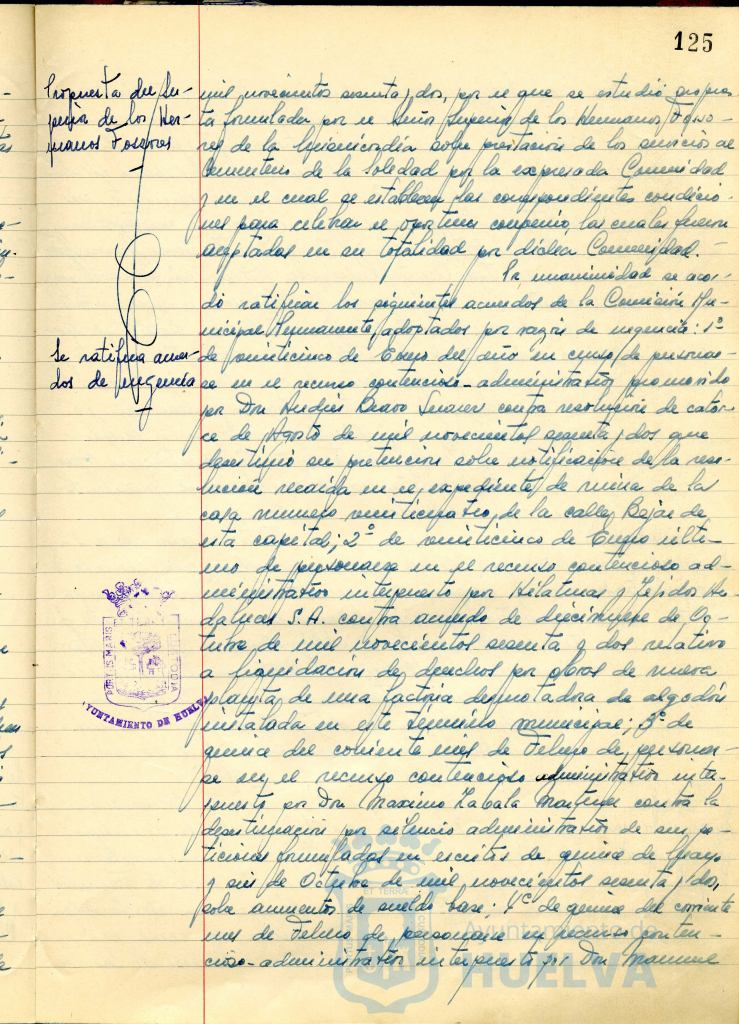 125
Propuesta del Su-
perior de los Her-
manos Fossores
mil novecientos sesenta y dos, por el que se estudió propues
ta formulada por el Señor Superior de los Hermanos Fosso-
res de la Misericordia sobre prestación de los servicios al
Cementerio de la Soledad por la expresada Comunidad
y en el cual se establecen las correspondientes condicio-
nes para celebrar el oportuno convenio, las cuales fueron
aceptadas en su totalidad por dicha Comunidad.-
Por unanimidad se acor-
dó ratificar los siguientes acuerdos de la Comisión Mu-
nicipal Permanente, adoptados por razón de urgencia: 1º
Se ratifica acuer-
dos de urgencia
de veinticinco de Enero del año en curso, de personar-
se en el recurso contencioso-administrativo promovido
por Don Andrés Bravo Suarez contra resolución de cator-
ce de Agosto de mil novecientos sesenta y dos que
desestimó su pretensión sobre notificación de la reso-
lución recaída en el expediente de ruina de la
casa numero veinticuatro, de la calle Bejar de
esta capital; 2º de veinticinco de Enero últi-
mo de personarse en el recurso contencioso ad-
ministrativo interpuesto por Hilaturas y Tejidos
daluces S.A. contra acuerdo de diecinueve de Oc-
tubre de mil novecientos sesenta y dos relativo
a liquidación de derechos por obras de nueva
planta, de una factoria desmotadora de algodón
instalada en este termino municipal; 3º de
quince del corriente mes de Febrero de personar-
se en el recurso contencioso administrativo inter-
puesto por Don Maximo Zabala Martinez contra la
desestimación por silencio administrativo de sus pe-
ticiones formuladas en escritos de quince de Mayo
y seis de Octubre de mil novecientos sesenta y dos,
sobre aumentos de sueldo base; 4º de quince del corriente
mes de Febrero de personarse en recurso conten-
cioso-administrativo interpuesto por Don
PORTUS MARIS
CUSTODIA
AYUNTAMIENTO DE HUELVA
ET TERRAE
Ayuntamiento de
HUELVA